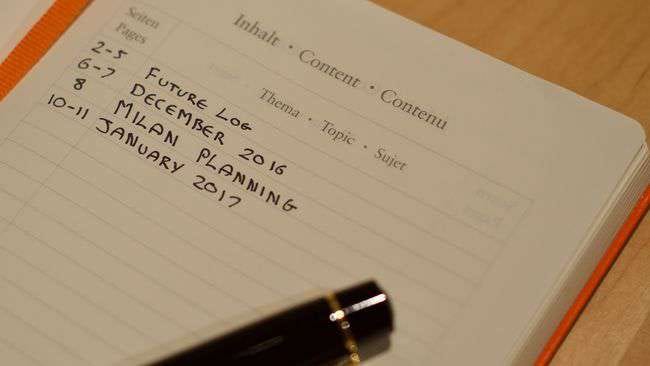 Inhalt • Content • Contenu
Seiten
Pages
Thema • Topic • Sujet
2-5 FUTURE LOG
6-7 DECEMBER 2016
8 MILAN PLANNING
10-11 JANUARY 2017